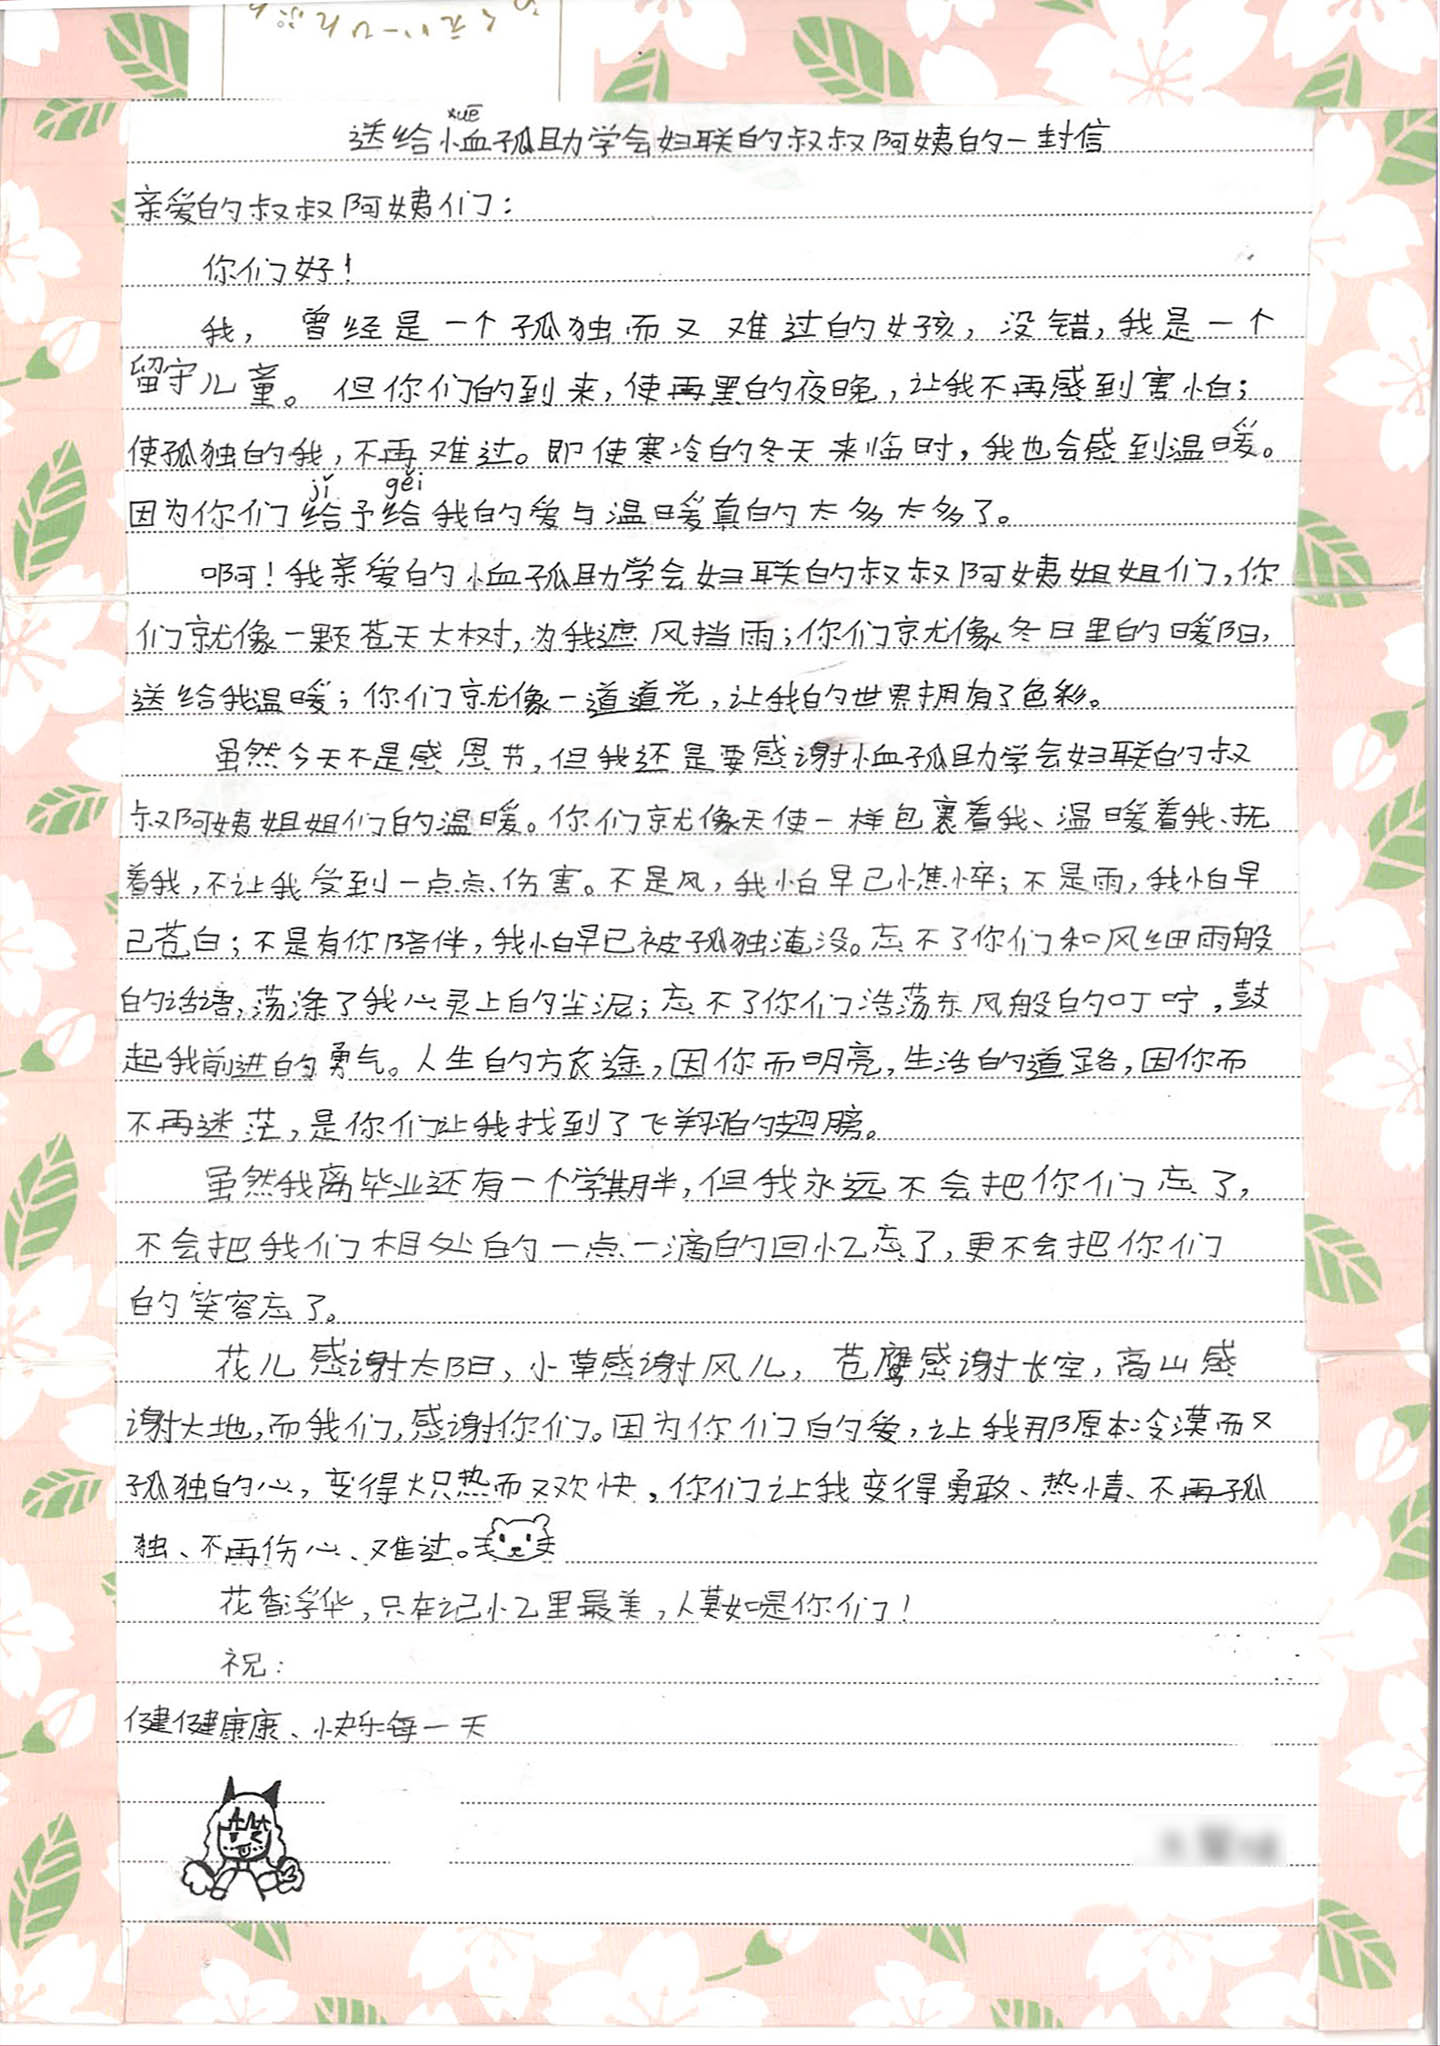 xuē
送给恤孤助学会妇联的叔叔阿姨的一封信
亲爱的叔叔阿姨们：
你们好！
我，曾经是一个孤独而又难过的女孩，没错，我是一个
留守儿童。但你们的到来，使再黑的夜晚，让我不再感到害怕；
使孤独的我，不再难过。即使寒冷的冬天来临时，我也会感到温暖。
jǐ gěi
因为你们给予给我的爱与温暖真的太多太多了。
啊！我亲爱的恤孤助学会妇联的叔叔阿姨姐姐们，你
们就像一颗苍天大树，为我遮风挡雨；你们就像冬日里的暖阳，
送给我温暖；你们就像一道道光，让我的世界拥有了色彩。
虽然今天不是感恩节，但我还是要感谢恤孤助学会妇联的叔
叔阿姨姐姐们的温暖。你们就像天使一样包裹着我、温暖着我、抚
着我，不让我受到一点点伤害。不是风，我怕早已憔悴；不是雨，我怕早
已苍白；不是有你陪伴，我怕早已被孤独淹没。忘不了你们和风细雨般
的话语，荡涤了我心灵上的尘泥；忘不了你们浩荡东风般的叮咛，鼓
起我前进的勇气。人生的旅途，因你而明亮，生活的道路，因你而
不再迷茫，是你们让我找到了飞翔的翅膀。
虽然我离毕业还有一个学期半，但我永远不会把你们忘了，
不会把我们相处的一点一滴的回忆忘了，更不会把你们
的笑容忘了。
花儿感谢太阳，小草感谢风儿，苍鹰感谢长空，高山感
谢大地，而我们，感谢你们。因为你们的爱，让我那原本冷漠而又
孤独的心，变得炽热而又欢快，你们让我变得勇敢、热情、不再孤
独、不再伤心、难过。
花香浮华，只在记忆里最美，莫如是你们！
祝：
健健康康、快乐每一天